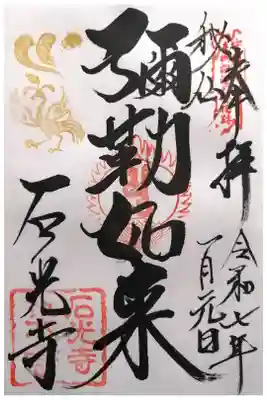 奉拝
令和七年
一月元日
秘仏
彌勒如来
石光寺
石光寺